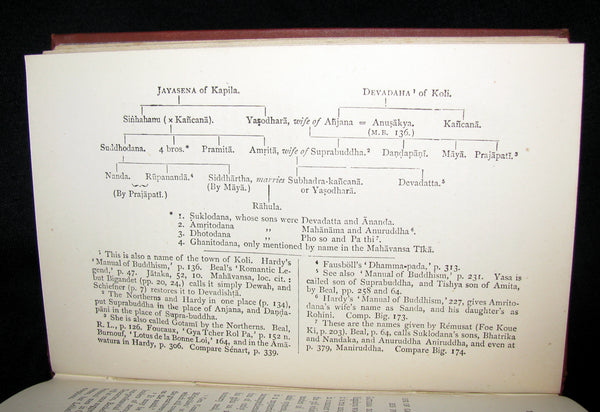 JAYASENA of Kapila. DEVADAHA ¹ of Koli.
Siṅhahanu (× Kañcanā). Yaṣodharā, wife of Añjana = Anuṣākya. Kañcanā.
(M.B. 136.)
Suddhodana. 4 bros.* Pramitā. Amṛitā, wife of Suprabuddha.² Daṇḍapāṇi. Māyā. Prajāpatī.³
Nanda. Rūpanandā.⁴ Siddhārtha, marries Subhadra-kañcanā. Devadatta.⁵
(By Prajāpatī.) (By Māyā.) or Yaṣodharā.
Rāhula.
* 1. Ṣuklodana, whose sons were Devadatta and Ānanda.
2. Amṛitodana „ Mahānāma and Anuruddha⁶
3. Dhotodana „ Pho so and Pa thi⁷
4. Ghanitodana, only mentioned by name in the Mahāvansa Ṭīkā.
¹ This is also a name of the town of Koli. Hardy's
'Manual of Buddhism,' p. 136. Beal's 'Romantic Le-
gend,' p. 47. Jātaka, 52, 10. Mahāvansa, loc. cit. :
but Bigandet (pp. 20, 24,) calls it simply Dewah, and
Schiefner (p. 7) restores it to Devadishṭā.
² The Northerns and Hardy in one place (p. 134),
put Suprabuddha in the place of Anjana, and Daṇḍa-
pāni in the place of Supra-buddha.
³ She is also called Gotamī by the Northerns. Beal,
R. L., p. 126. Foucaux, 'Gya Tcher Rol Pa,' p. 152 n.
Burnouf, 'Lotus de la Bonne Loi,' 164, and in the Amā-
watura in Hardy, p. 306. Compare Sénart, p. 339.
⁴ Fausböll's 'Dhamma-pada,' p. 313.
⁵ See also 'Manual of Buddhism,' p. 231. Yasa is
called son of Suprabuddha, and Tishya son of Amita,
by Beal, pp. 258 and 64.
⁶ Hardy's 'Manual of Buddhism,' 227, gives Amrito-
dana's wife's name as Sanda, and his daughter's as
Rohini. Comp. Big. 173.
⁷ These are the names given by Rémusat (Foe Koue
Ki, p. 203). Beal, p. 64, calls Suklodana's sons, Bhatrika
and Nandaka, and Anuruddha Aniruddha, and even at
p. 379, Maniruddha. Compare Big. 174.